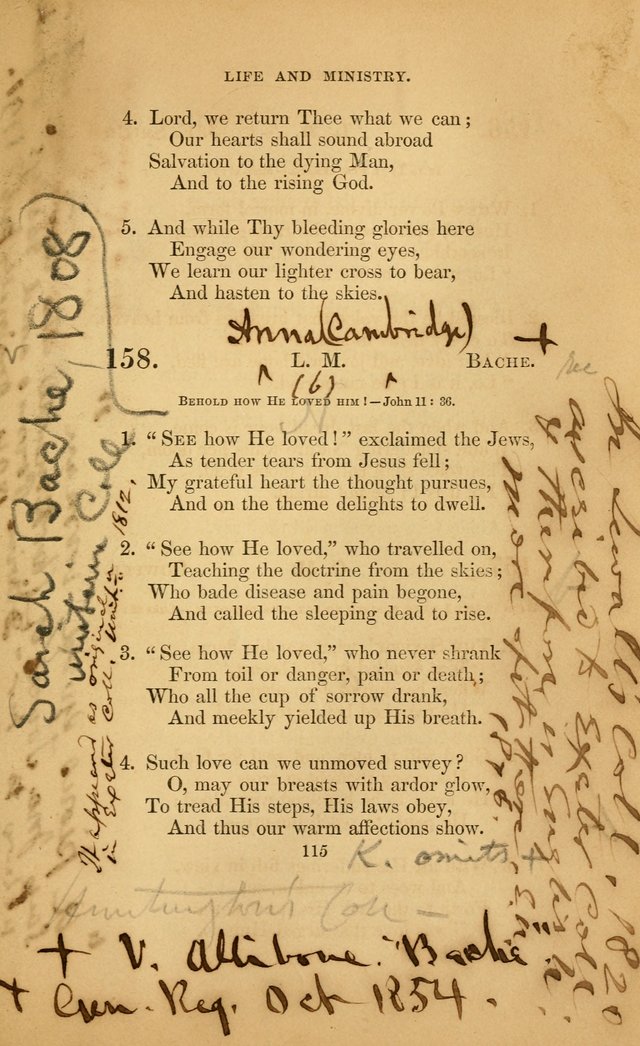 LIFE AND MINISTRY.
4. Lord, we return Thee what we can;
Our hearts shall sound abroad
Salvation to the dying Man,
And to the rising God.
5. And while Thy bleeding glories here
Engage our wondering eyes,
We learn our lighter cross to bear,
And hasten to the skies.
Anna (Cambridge)
158. L. M. BACHE. +
(6)
BEHOLD HOW HE LOVED HIM!—John 11: 36.
1. "SEE how He loved!" exclaimed the Jews,
As tender tears from Jesus fell;
My grateful heart the thought pursues,
And on the theme delights to dwell.
2. "See how He loved," who travelled on,
Teaching the doctrine from the skies;
Who bade disease and pain begone,
And called the sleeping dead to rise.
3. "See how He loved," who never shrank
From toil or danger, pain or death;
Who all the cup of sorrow drank,
And meekly yielded up His breath.
4. Such love can we unmoved survey?
O, may our breasts with ardor glow,
To tread His steps, His laws obey,
And thus our warm affections show.
115
K. omits +
Huntington's Coll —
+ V. Allibone. "Bache"
+ Gen. Reg. Oct 1854.
Sarah Bache, 1808
Coll
It appeared as original
in Exeter Coll. 1812,
Coll. 1820
ascribed to Exeter Coll.
& therefore is English